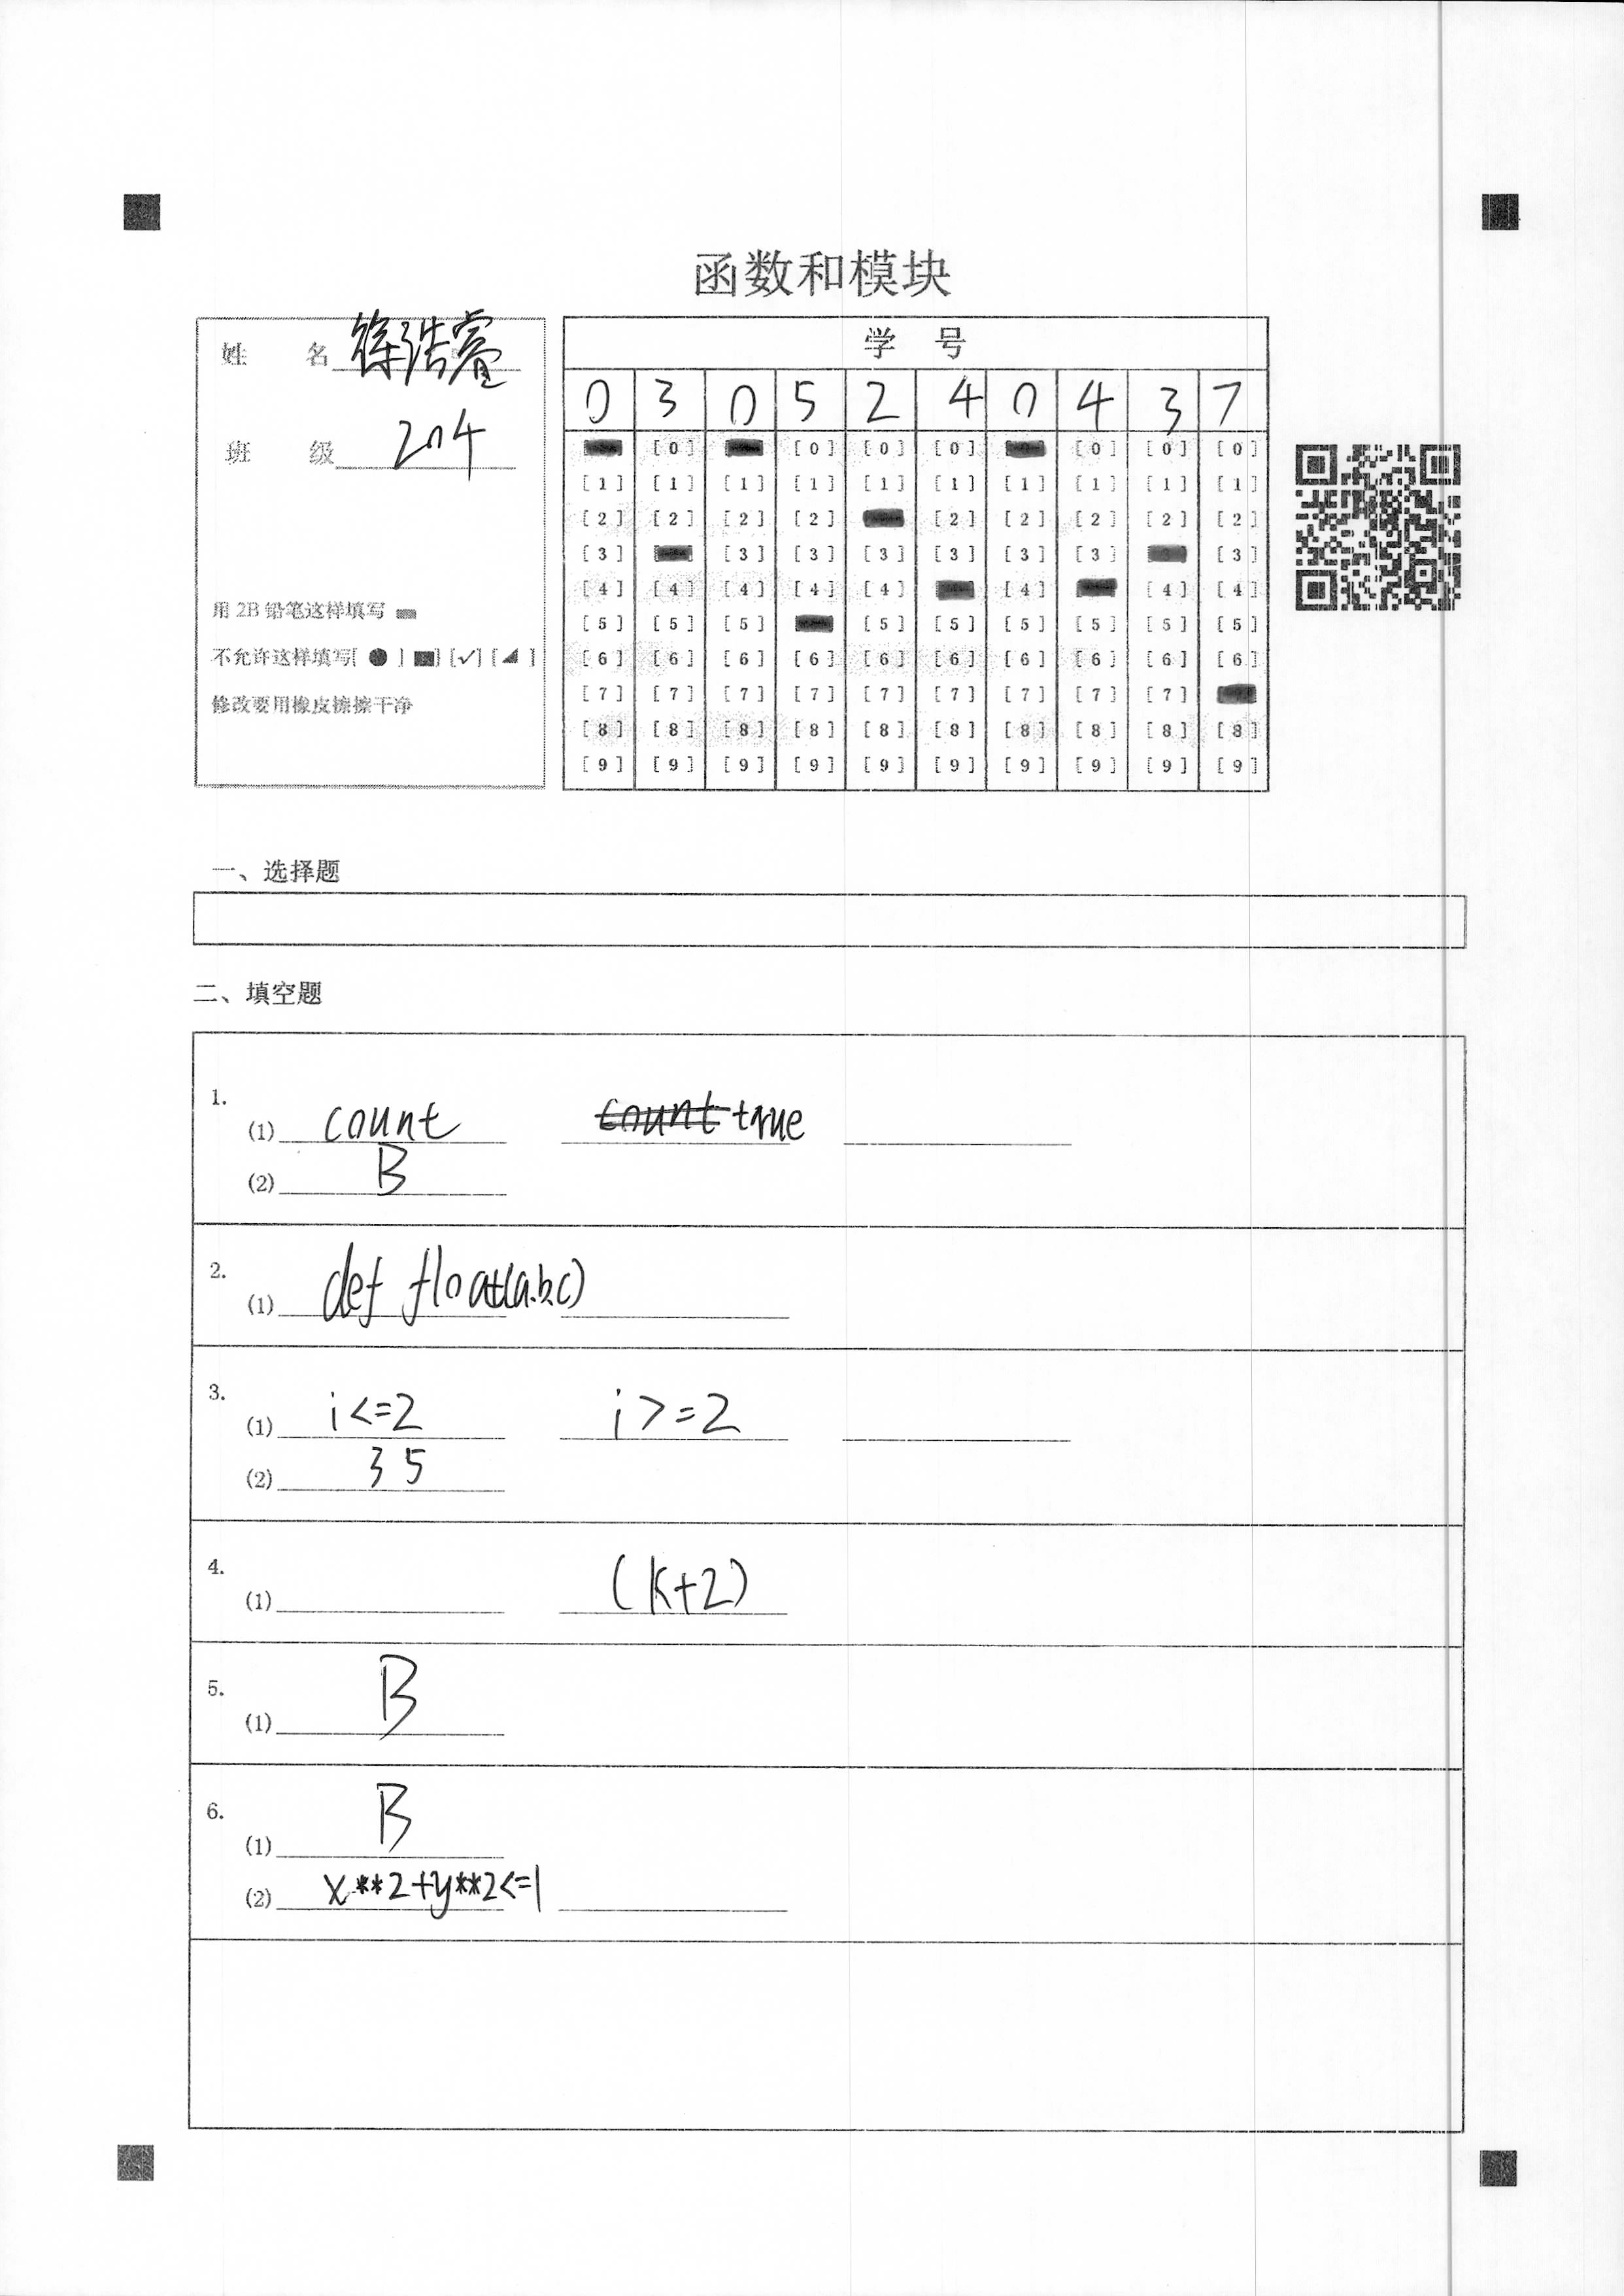 函数和模块
姓 名 徐浩睿
班 级 204
用 2B 铅笔这样填写
不允许这样填写[ ● ] [√] [ ]
修改要用橡皮擦擦干净
学 号
0 3 0 5 2 4 0 4 3 7
[0] [0] [0] [0] [0] [0] [0]
[1] [1] [1] [1] [1] [1] [1] [1] [1] [1]
[2] [2] [2] [2] [2] [2] [2] [2] [2]
[3] [3] [3] [3] [3] [3] [3] [3]
[4] [4] [4] [4] [4] [4] [4] [4]
[5] [5] [5] [5] [5] [5] [5] [5] [5]
[6] [6] [6] [6] [6] [6] [6] [6] [6] [6]
[7] [7] [7] [7] [7] [7] [7] [7] [7]
[8] [8] [8] [8] [8] [8] [8] [8] [8] [8]
[9] [9] [9] [9] [9] [9] [9] [9] [9] [9]
一、选择题
二、填空题
1.
(1) count count true
(2) B
2.
(1) def float(a.b.c)
3.
(1) i<=2 i>=2
(2) 3 5
4.
(1) (k+2)
5.
(1) B
6.
(1) B
(2) x**2+y**2<=1